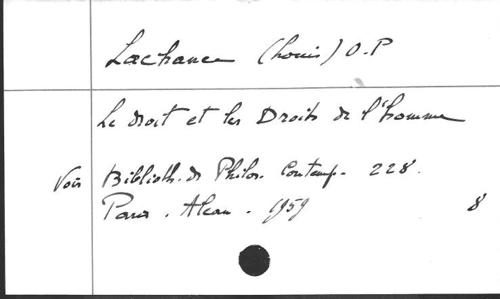 Lachance (Louis) O.P
Le droit et les Droits de l'homme
Voir Biblioth. de Philos. Contemp. 228.
Paris. Alcan. 1959 8